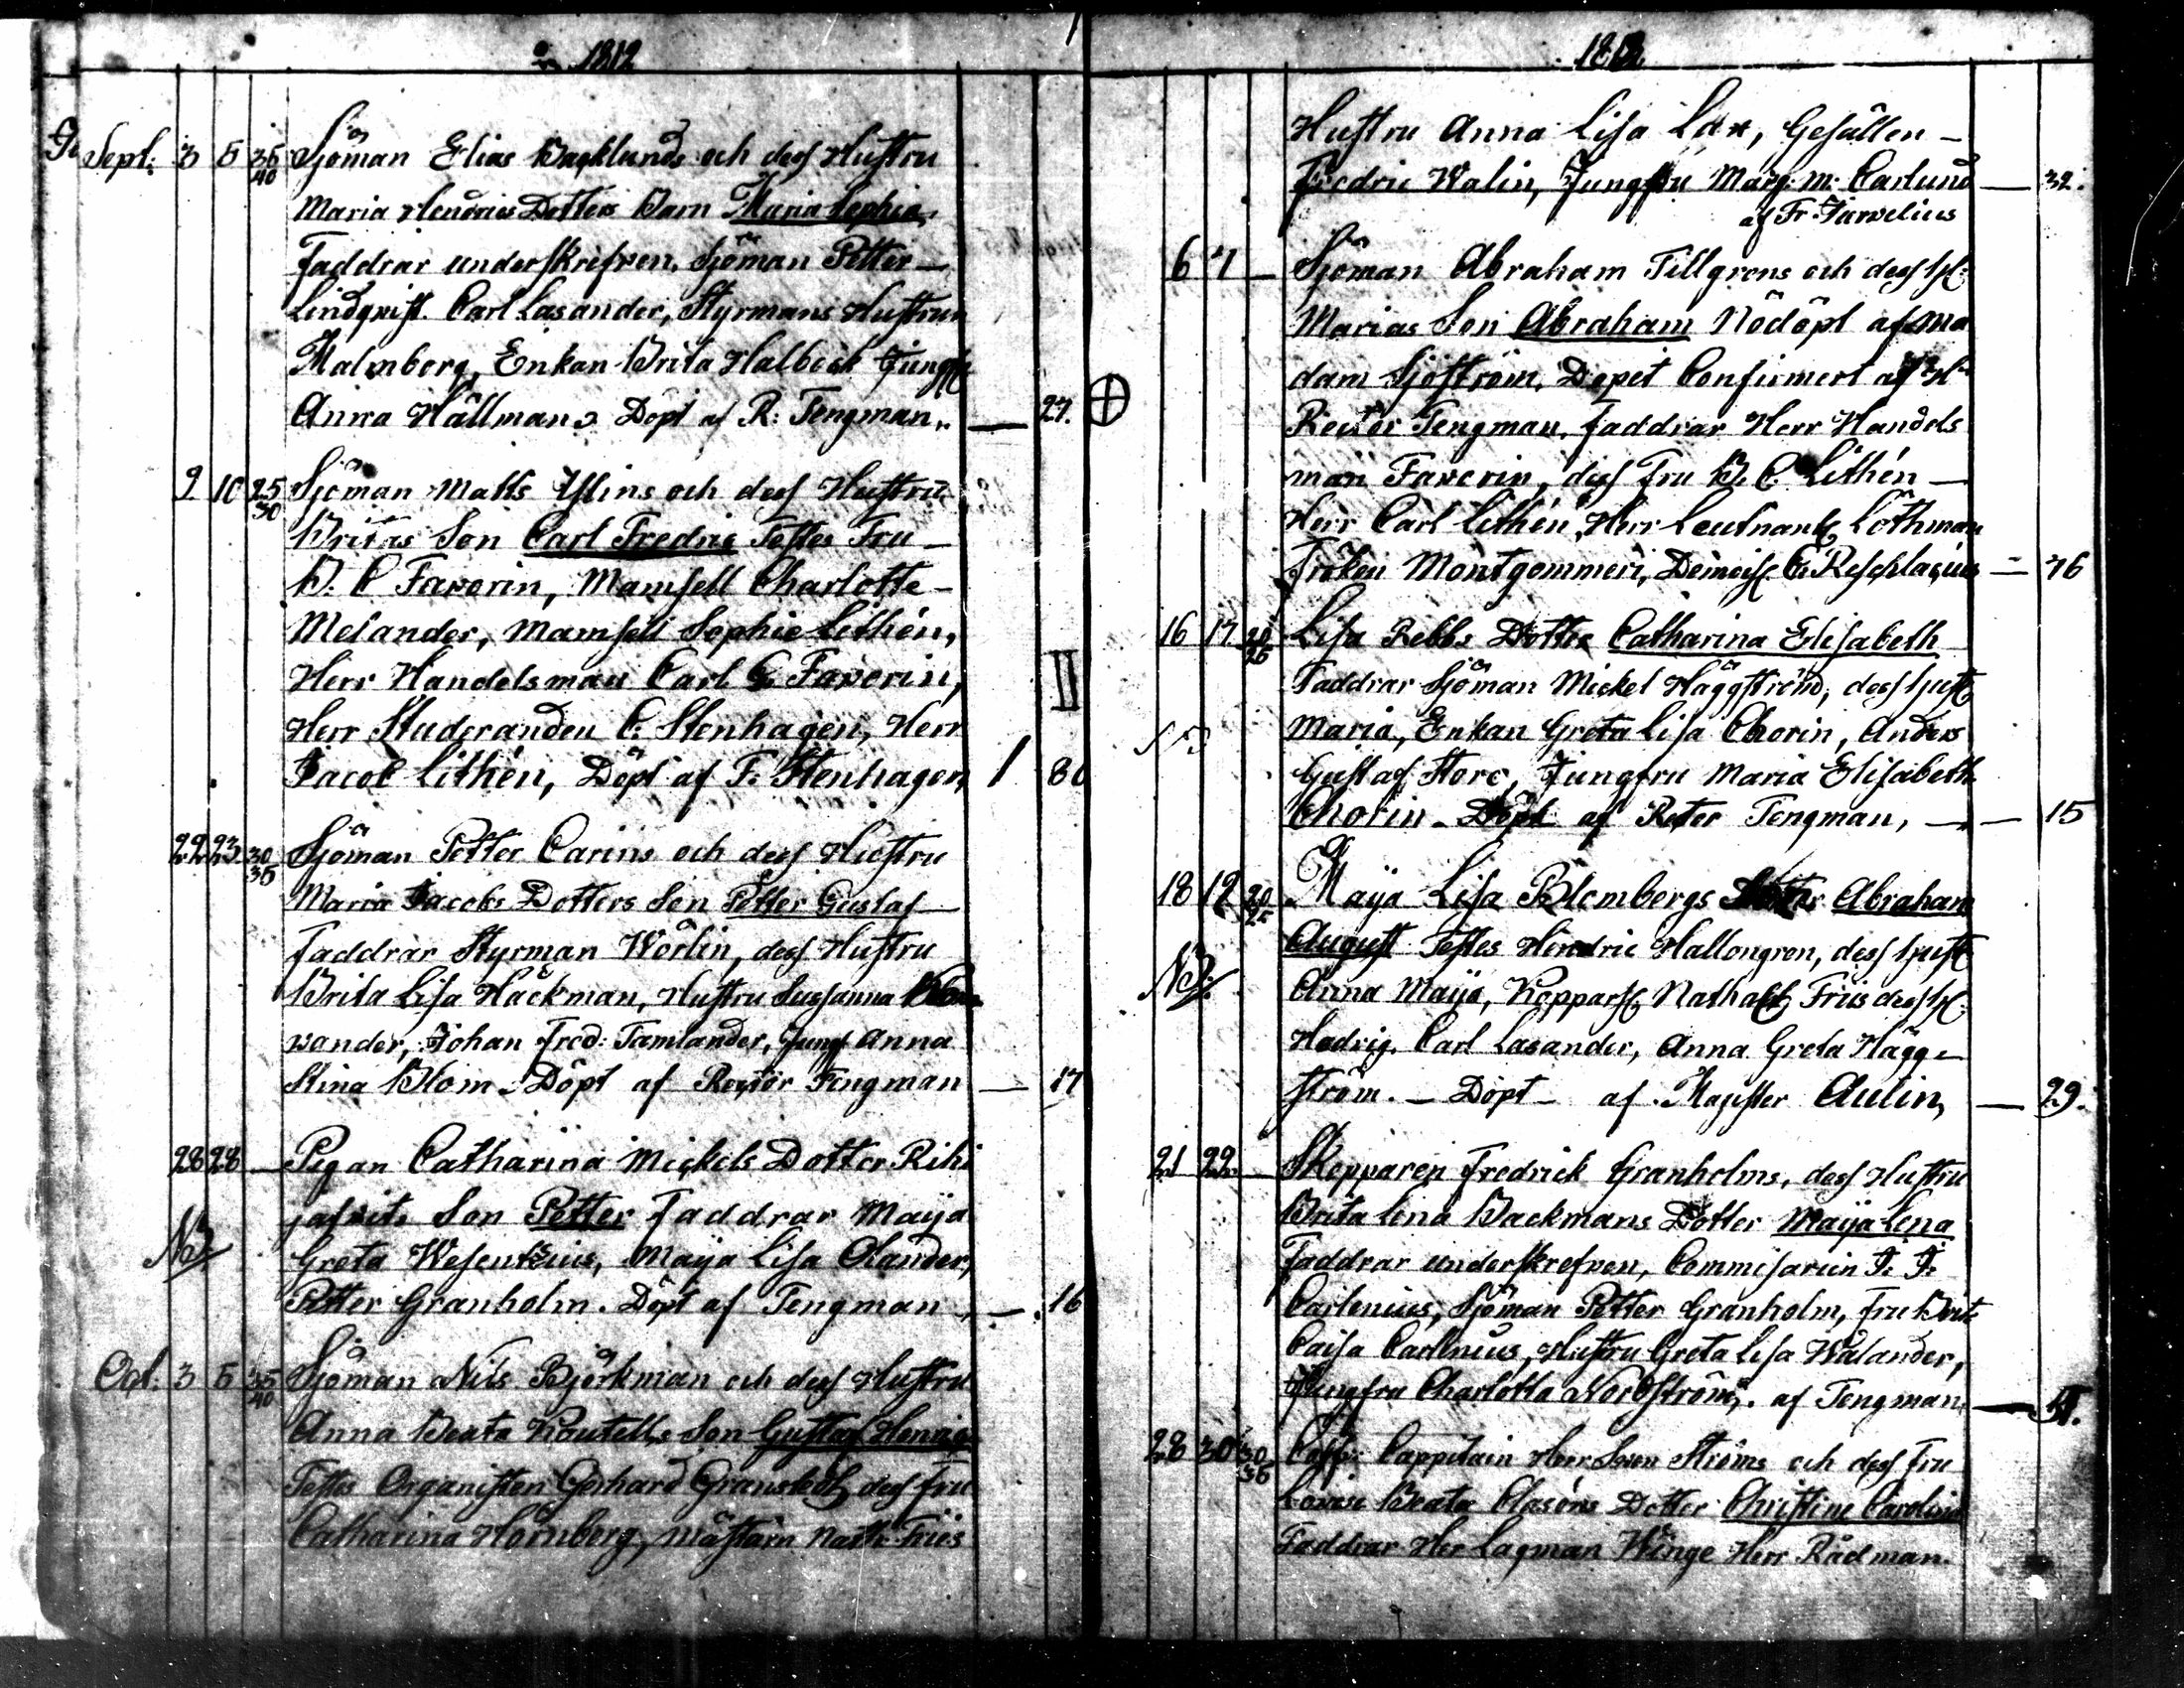 1812
Sept: 3 5 35/40 Sjöman Elias Backlunds och dess Hustru
Maria Hendrics Dotters Barn Maria Sophia,
Faddrar underskrifven, Sjöman Petter
Lindqvist. Carl Lasander, Styrmans Hustrun
Malmberg, Enkan Brita Halbeck Jungf
Anna Hällman. Döpt af R: Tengman, — 27.
9 10 25/30 Sjöman Matts Ylins och dess Hustru
Britas Son Carl Fredric Testes Fru
B. C Favorin, Mamsell Charlotte
Melander, Mamsell Sophie Lithén,
Herr Handelsman Carl G Favorin,
Herr Studeranden C. Stenhagen, Herr
Jacob Lithén, Döpt af F: Stenhagen, 1 80
22 23 30/35 Sjöman Petter Carins och dess Hustru
Maria Jacobs Dotters Son Petter Gustaf
Faddrar Styrman Wörlin, dess Hustru
Brita Lisa Häckman, Hustru Sussanna
wander, Johan Fred: Tamlander, Jungf Anna
Stina Blom. Döpt af Rector Tengman — 17
28 28 — Pigan Catharina Mickels Dotter Rihi
Son Petter Faddrar Maija
NB Greta Wesenius, Maija Lisa Olander,
Petter Granholm. Döpt af Tengman — 16
Oct: 3 5 35/40 Sjöman Nils Björkman och dess Hustru
Anna Beata Son Gustaf Henric
Testes Organisten Gerhard Granstedt, dess fru
Catharina Hornberg, Mästarn Nath: Friis
1812
Hustru Anna Lisa Lax, Gesällen
Fredric Walin, Jungfru Marg: M: Carlund — 32.
af Fr Jarvelius
6 7 — Sjöman Abraham Tillgrens och dess H:
Marias Son Abraham Nödöpt af Ma
dam Sjöström, Dopet Confirmert af H:
Rector Tengman, Faddrar Herr Handels
man Favorin, dess Fru B. C. Lithén
Herr Carl Lithén, Herr Leutnant Löthman
Fröken Montgommeri, Demoisl. C. Reschlacius — 76
16 17 20/25 Lisa Rebbs Dotter Catharina Elisabeth
Faddrar Sjöman Mickel Häggström, dess Hust
NB Maria, Enkan Greta Lisa Chorin, Anders
Gustaf Store, Jungfru Maria Elisabeth
Chorin. Döpt af Rctor Tengman, — 15
18 19 20/25 Maija Lisa Blombergs Abraham
August Testes Hindric Hallongren, dess Hust
NB Anna Maija, Kopparsl Nathael Friis dess H:
Hedvig. Carl Lasander, Anna Greta Hägg-
ström. — Döpt — af Magister Aulin, — 29.
21 22 — Skepparen Fredrick Granholms, dess Hustru
Brita Lena Backmans Dotter Maija Lena
Faddrar underskrefven, Commisarien F: F:
Carlenius, Sjöman Petter Granholm, Fru Brit
Caisa Carlenius, Hustru Greta Lisa Walander,
Jungfru Charlotta Nordström. af Tengman
28 30 30/35 Cappitain Herr Sven Ströms och dess Fru
Lovise Beata Clasons Dotter Christine Carolina
Faddrar Her Lagman Winge Herr Rådman.